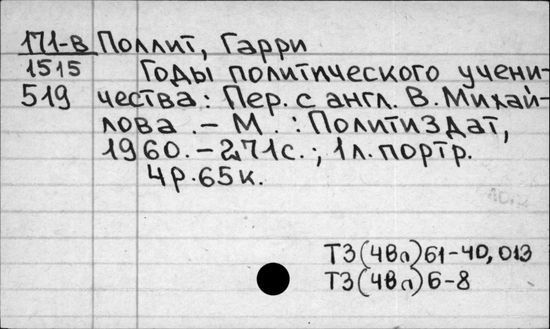 171-В Поллит, Гарри
1515 Годы политического учени-
519 чества: Пер. с англ. В. Михай-
лова. – М. : Политиздат,
1960. – 271с.; 1л. портр.
4р. 65к.
Т3(4Вл)61-40,013
Т3(4Вл)6-8